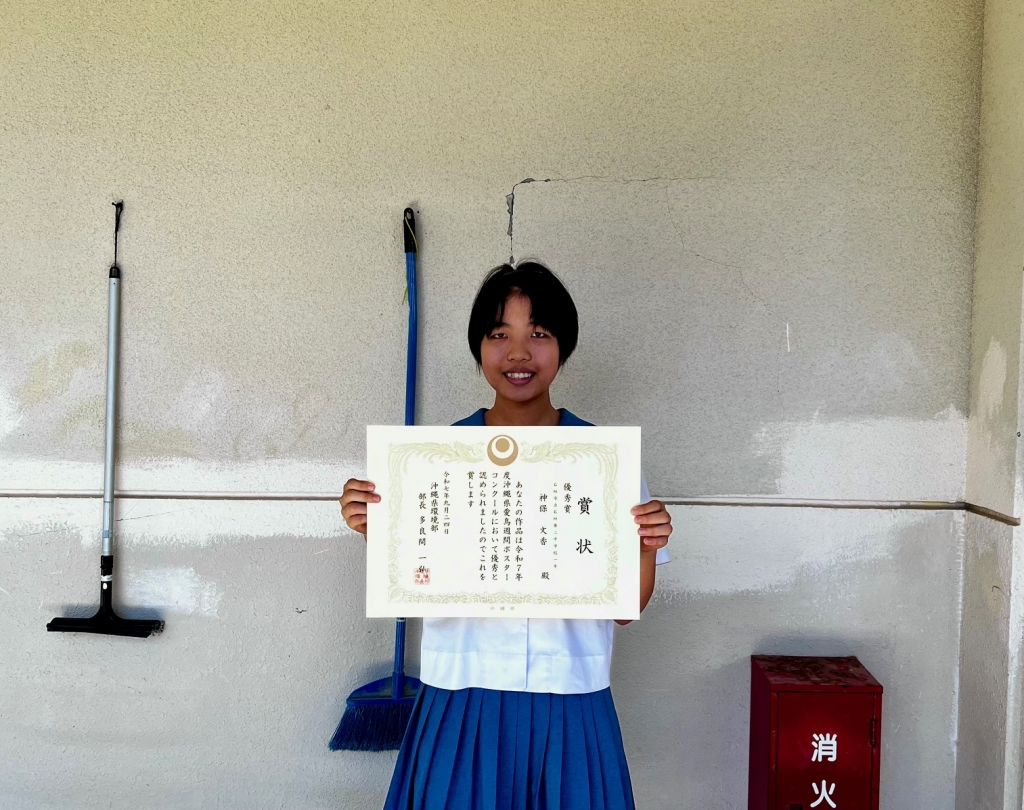 賞状
優秀賞
神保 文香 殿
あなたの作品は令和7年
度沖縄県愛鳥週間ポスター
コンクールにおいて優秀と
認められましたのでこれを
賞します
令和七年九月二四日
沖縄県環境部
部長 多良間 一
沖縄県
消
火